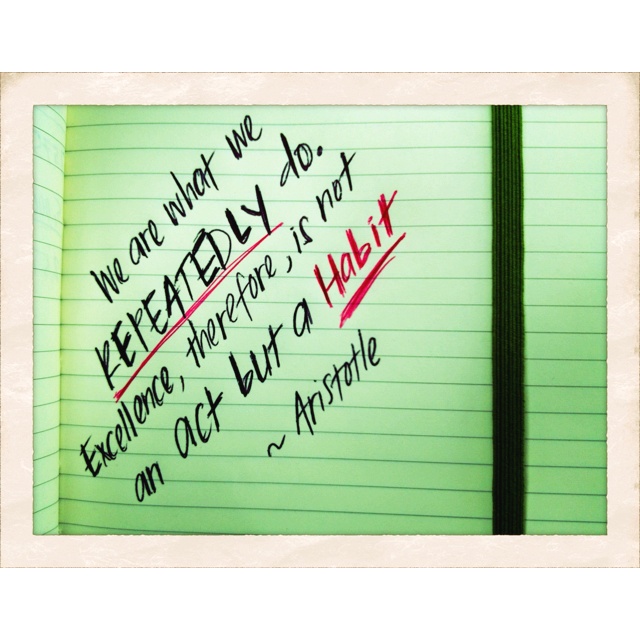 We are what we
REPEATEDLY do.
Excellence, therefore, is not
an act but a Habit
~ Aristotle